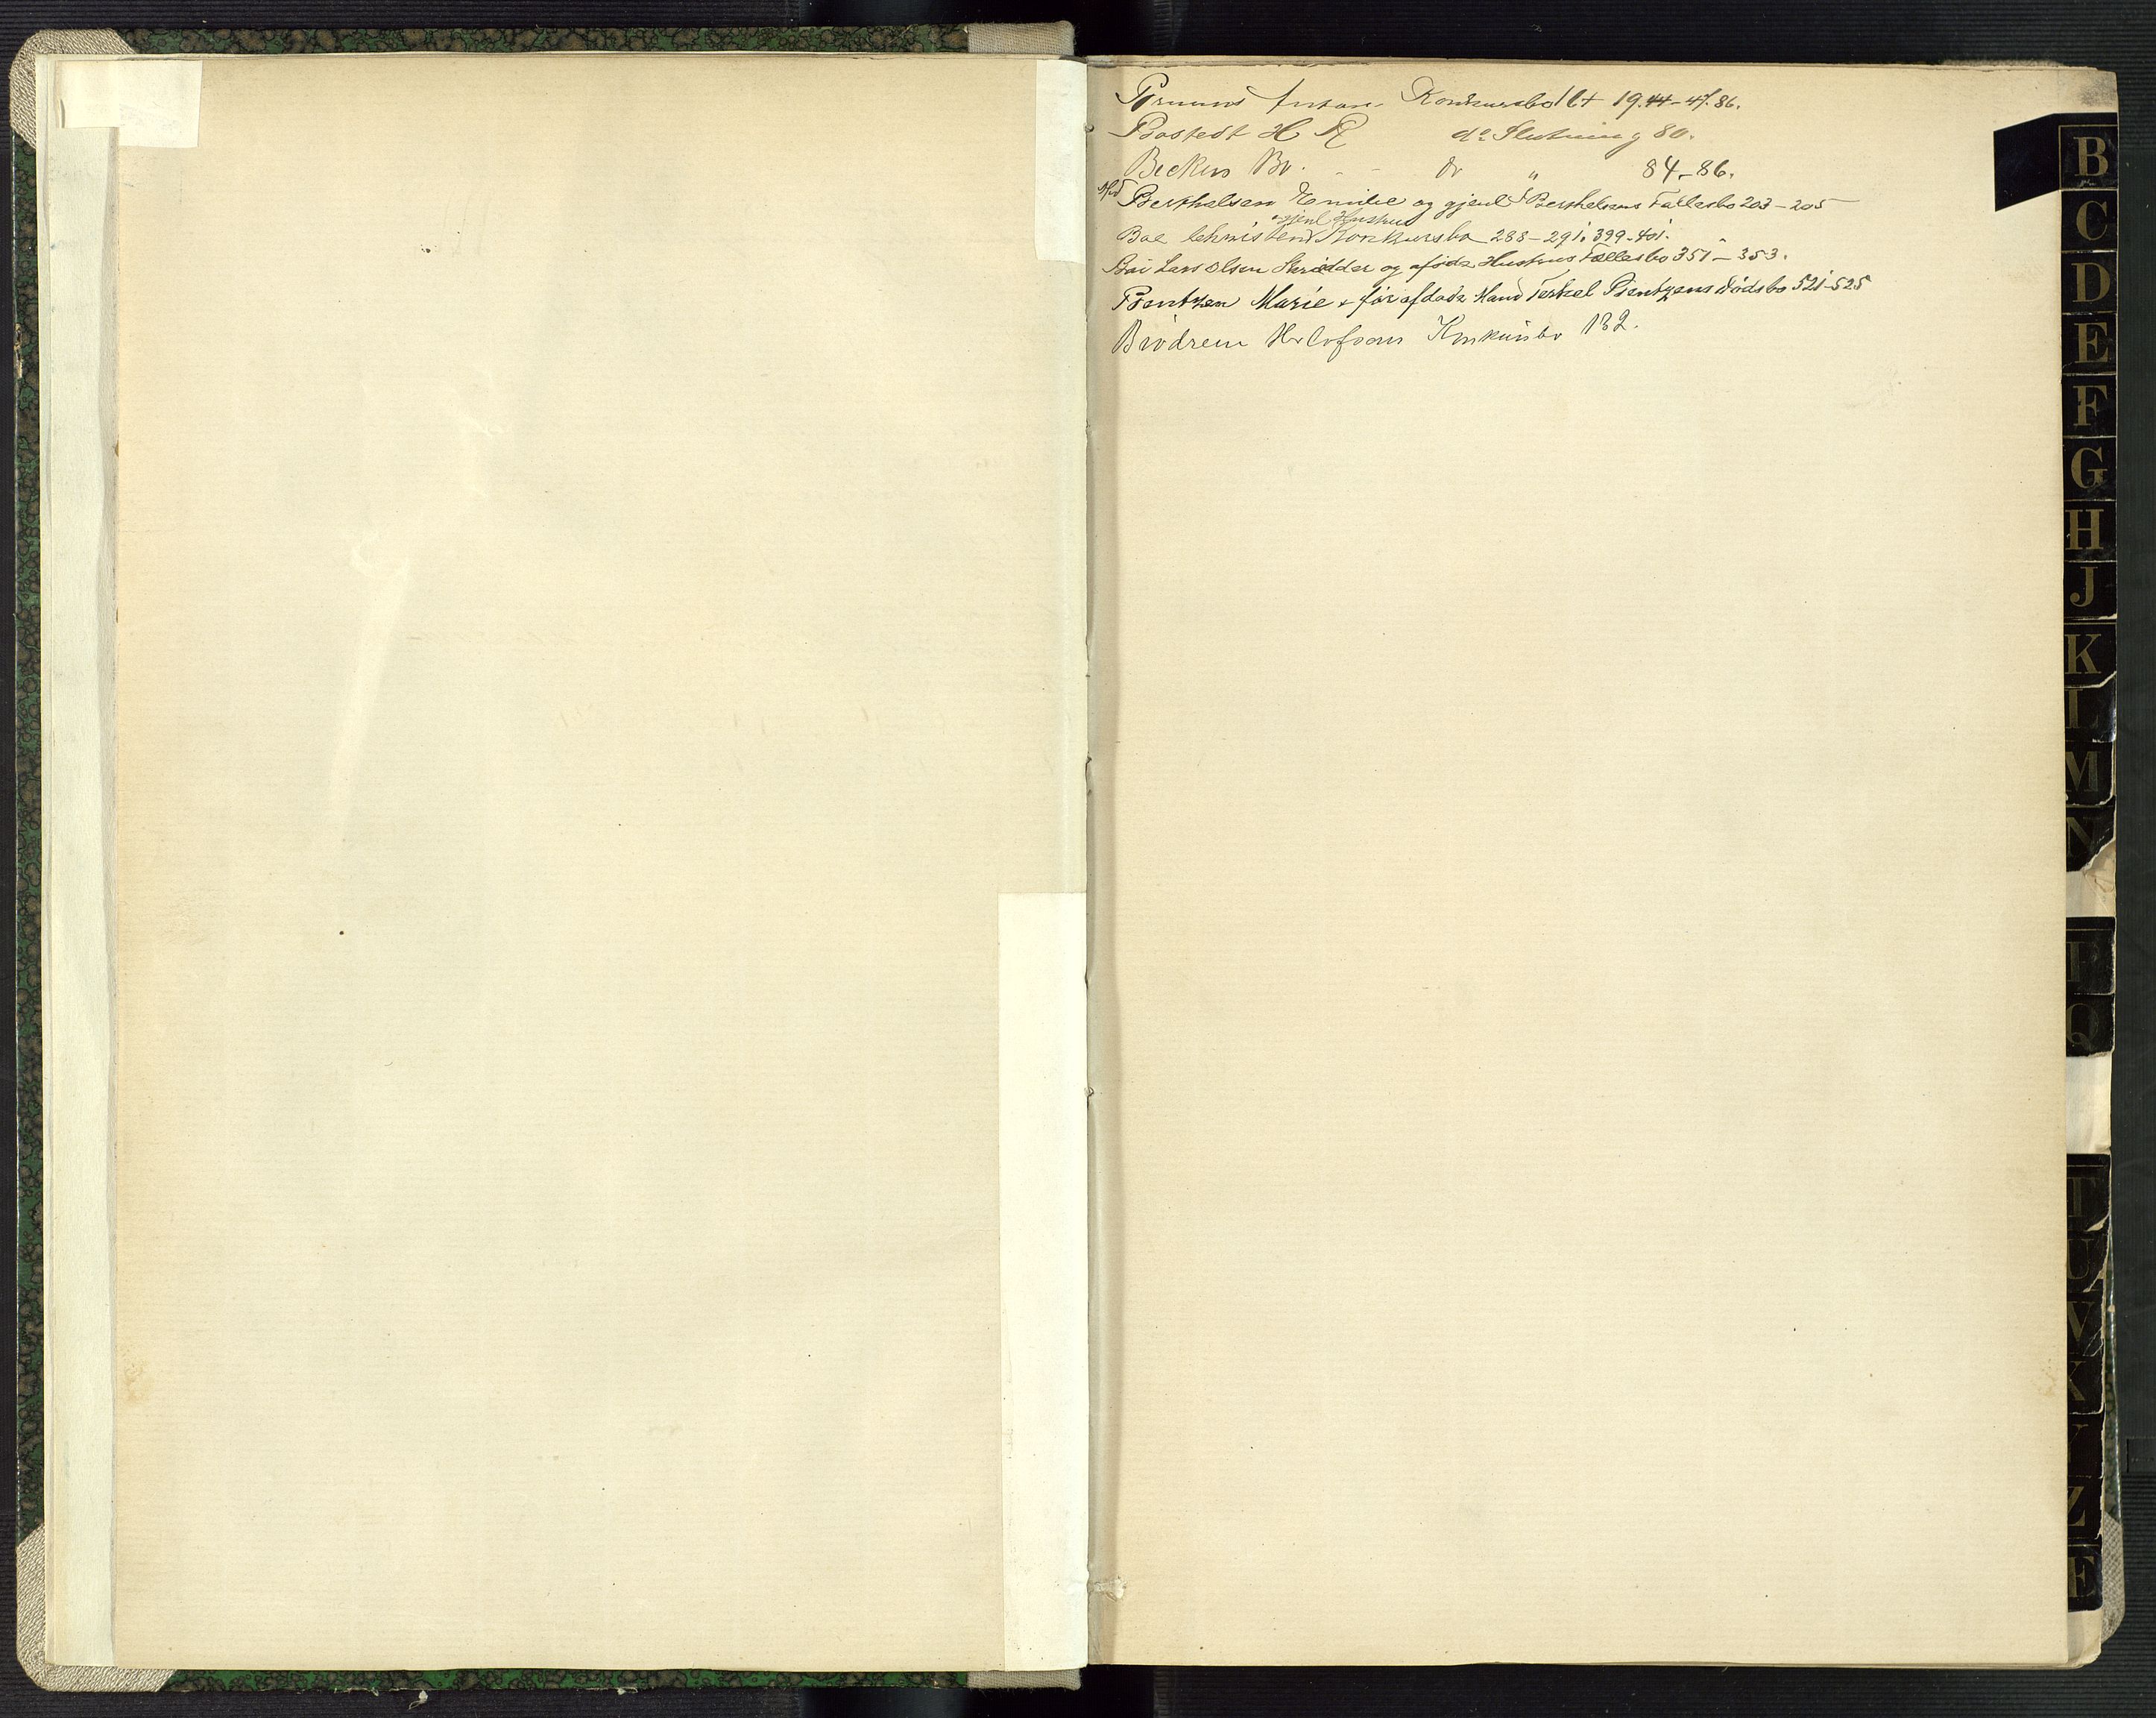 Bruuns Anton Konkursbo 16+ 19.44-47.86.
Bostedt H R do Slutning 80.
Beckers Br. - - do " 84-86.
Md Berthelsen Emilie og gjenl Berthelsens Fællesbo 203-205
og gjenl Hustrus
Boe Konkursbo 288-291. 399-401.
Lars Olsen Skrædder og afdøde Hustrus Fællesbo 351-353.
Bentzen Marie & før afdøde Mand Terkel Bentzens Dødsbo 521-525
Brødrene Konkursbo 132.
B
C
D
E
F
G
H
J
K
L
M
N
P
Q
T
U
V
X
Y
Z
Æ